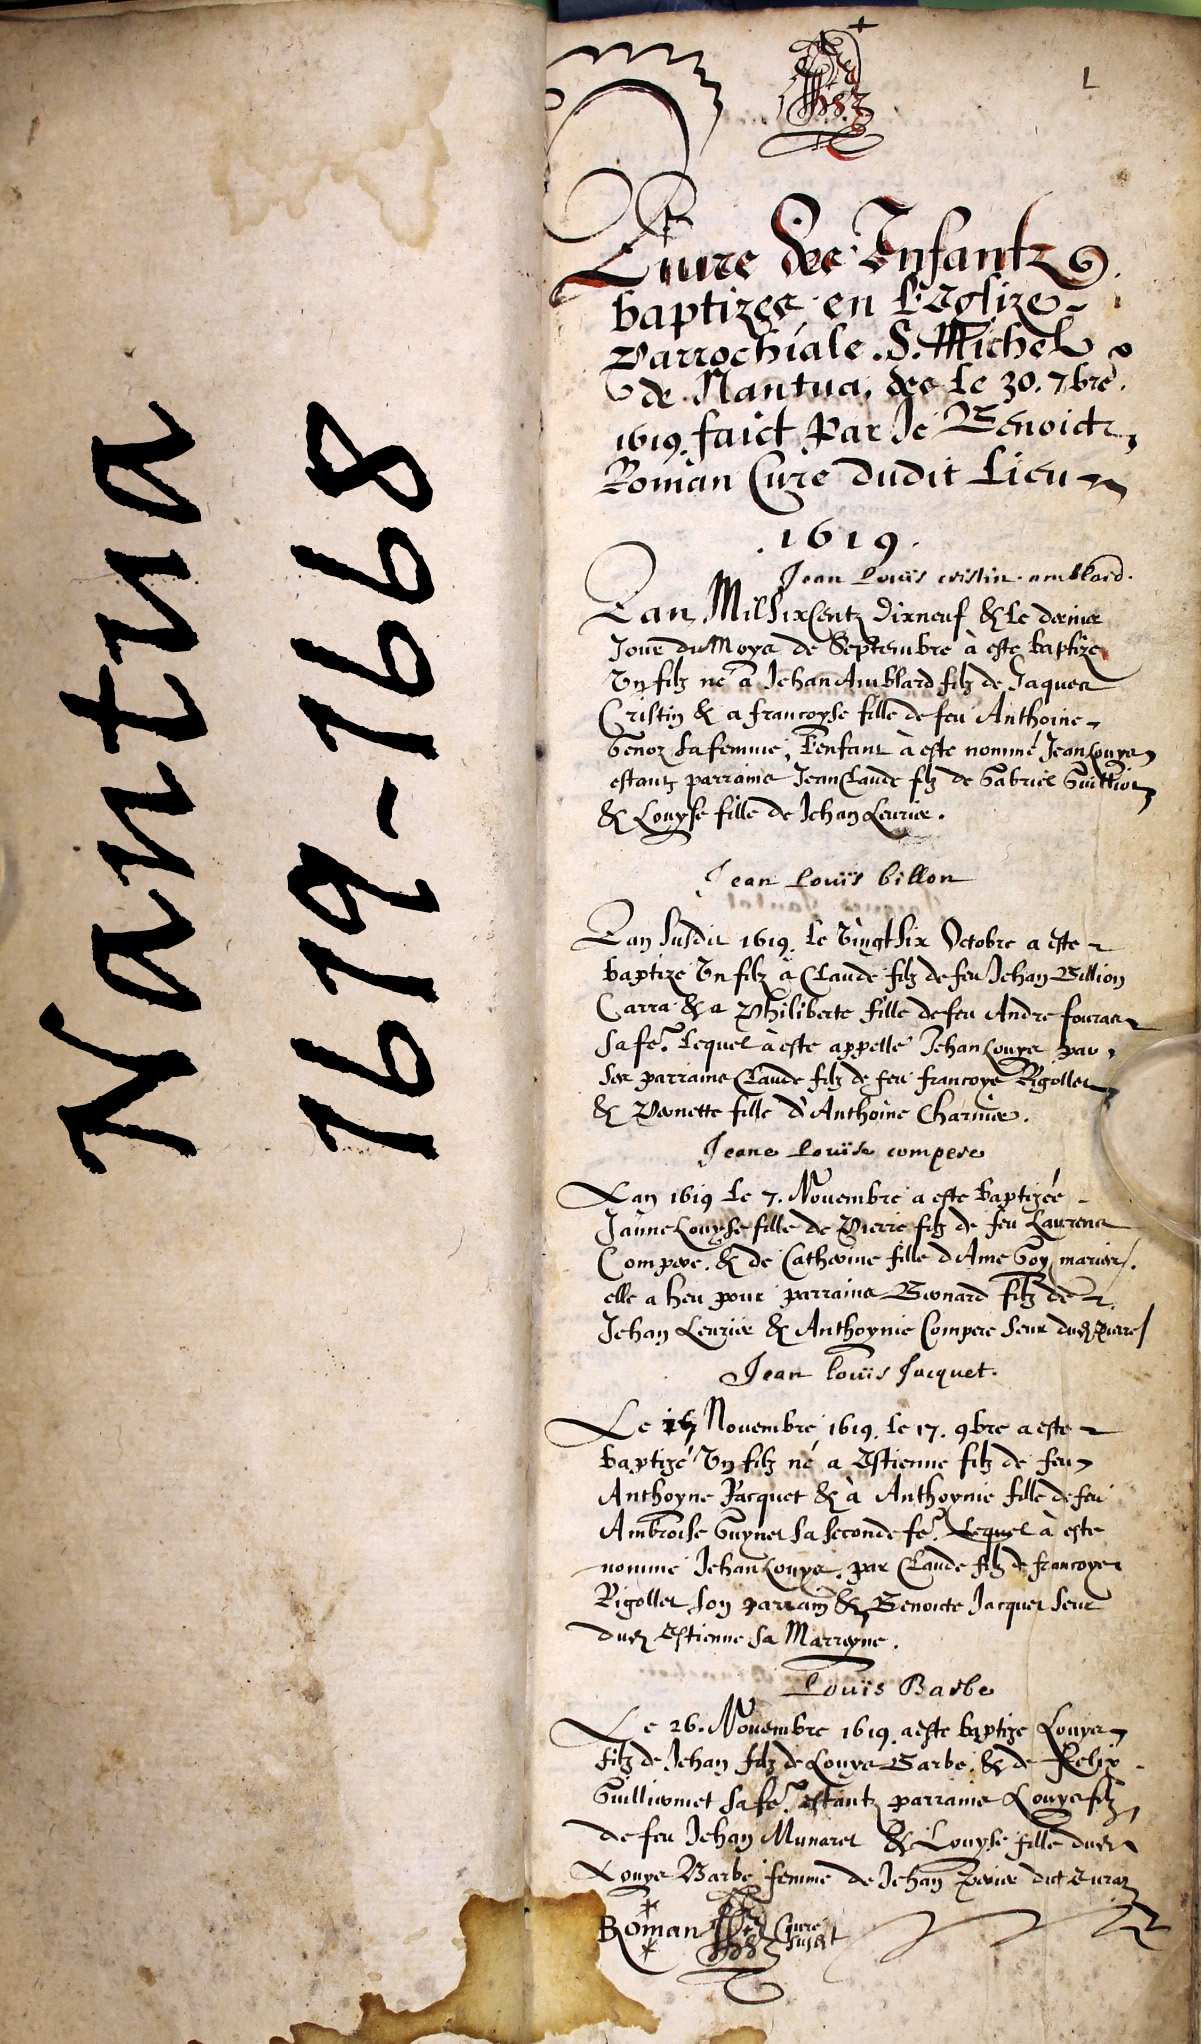 Nantua
1619-1668
1
Liure des Infantz
baptizes en L'Eglize
Parrochiale .S. Michel
de Nantua, des le 30. 7bre.
1619. faict Par Je Benoict
Roman Cure dudit Lieu
.1619.
Jean Louïs cristin amblard.
Lan Mil Six Centz Dixneuf & Le dernier
Jour du Moys de Septembre à este baptize
Un filz né a Jehan Amblard filz de Jaques
Cristin & a francoyse fille de feu Anthoine
Genoz sa femme, L'enfant à este nommé Jean Louys
estantz parrains Jean Claude filz de Gabriel
& Louyse fille de Jehan Leurier.
Jean Louïs billon
Lan susdit 1619. le Vingt Six Octobre a este
baptize Un filz a Claude filz de feu Jehan Billion
Carra & a Philiberte fille de feu Andre
sa fe. Lequel à este appellé Jehan Louys par
ses parrains Claude filz de feu francoys Rigollet
& Pernette fille d'Anthoine Charnier.
Jeane Louïse compere
Lan 1619 Le 7. Novembre a este baptizée
Janne Louyse fille de Pierre filz de feu Laurens
Compere. & de Catherine fille d Ame Goy mariez.
elle a heu pour parrains Bernard filz de
Jehan Leurier & Anthoynie Compere seur dud Pierre
Jean Louïs Jacquet.
Le Novembre 1619. Le 17. 9bre a este
baptizé Un filz né a Estienne filz de feu
Anthoyne Jacquet & à Anthoynie fille de feu
Ambroise Guynet sa seconde fe. Lequel à este
nommé Jehan Louys. par Claude filz de francoys
Rigollet son parrain & Benoicte Jacquet seur
dud Estienne sa Marreyne.
Louïs Barbe
Le 26. Novembre 1619. a este baptize Louys
filz de Jehan filz de Louys Barbe. & de Felix
Guilliermet sa fe. estantz parrains Louys filz
de feu Jehan Munaret & Louyse fille dud
Louys Barbe femme de Jehan dict
Roman Cure susd